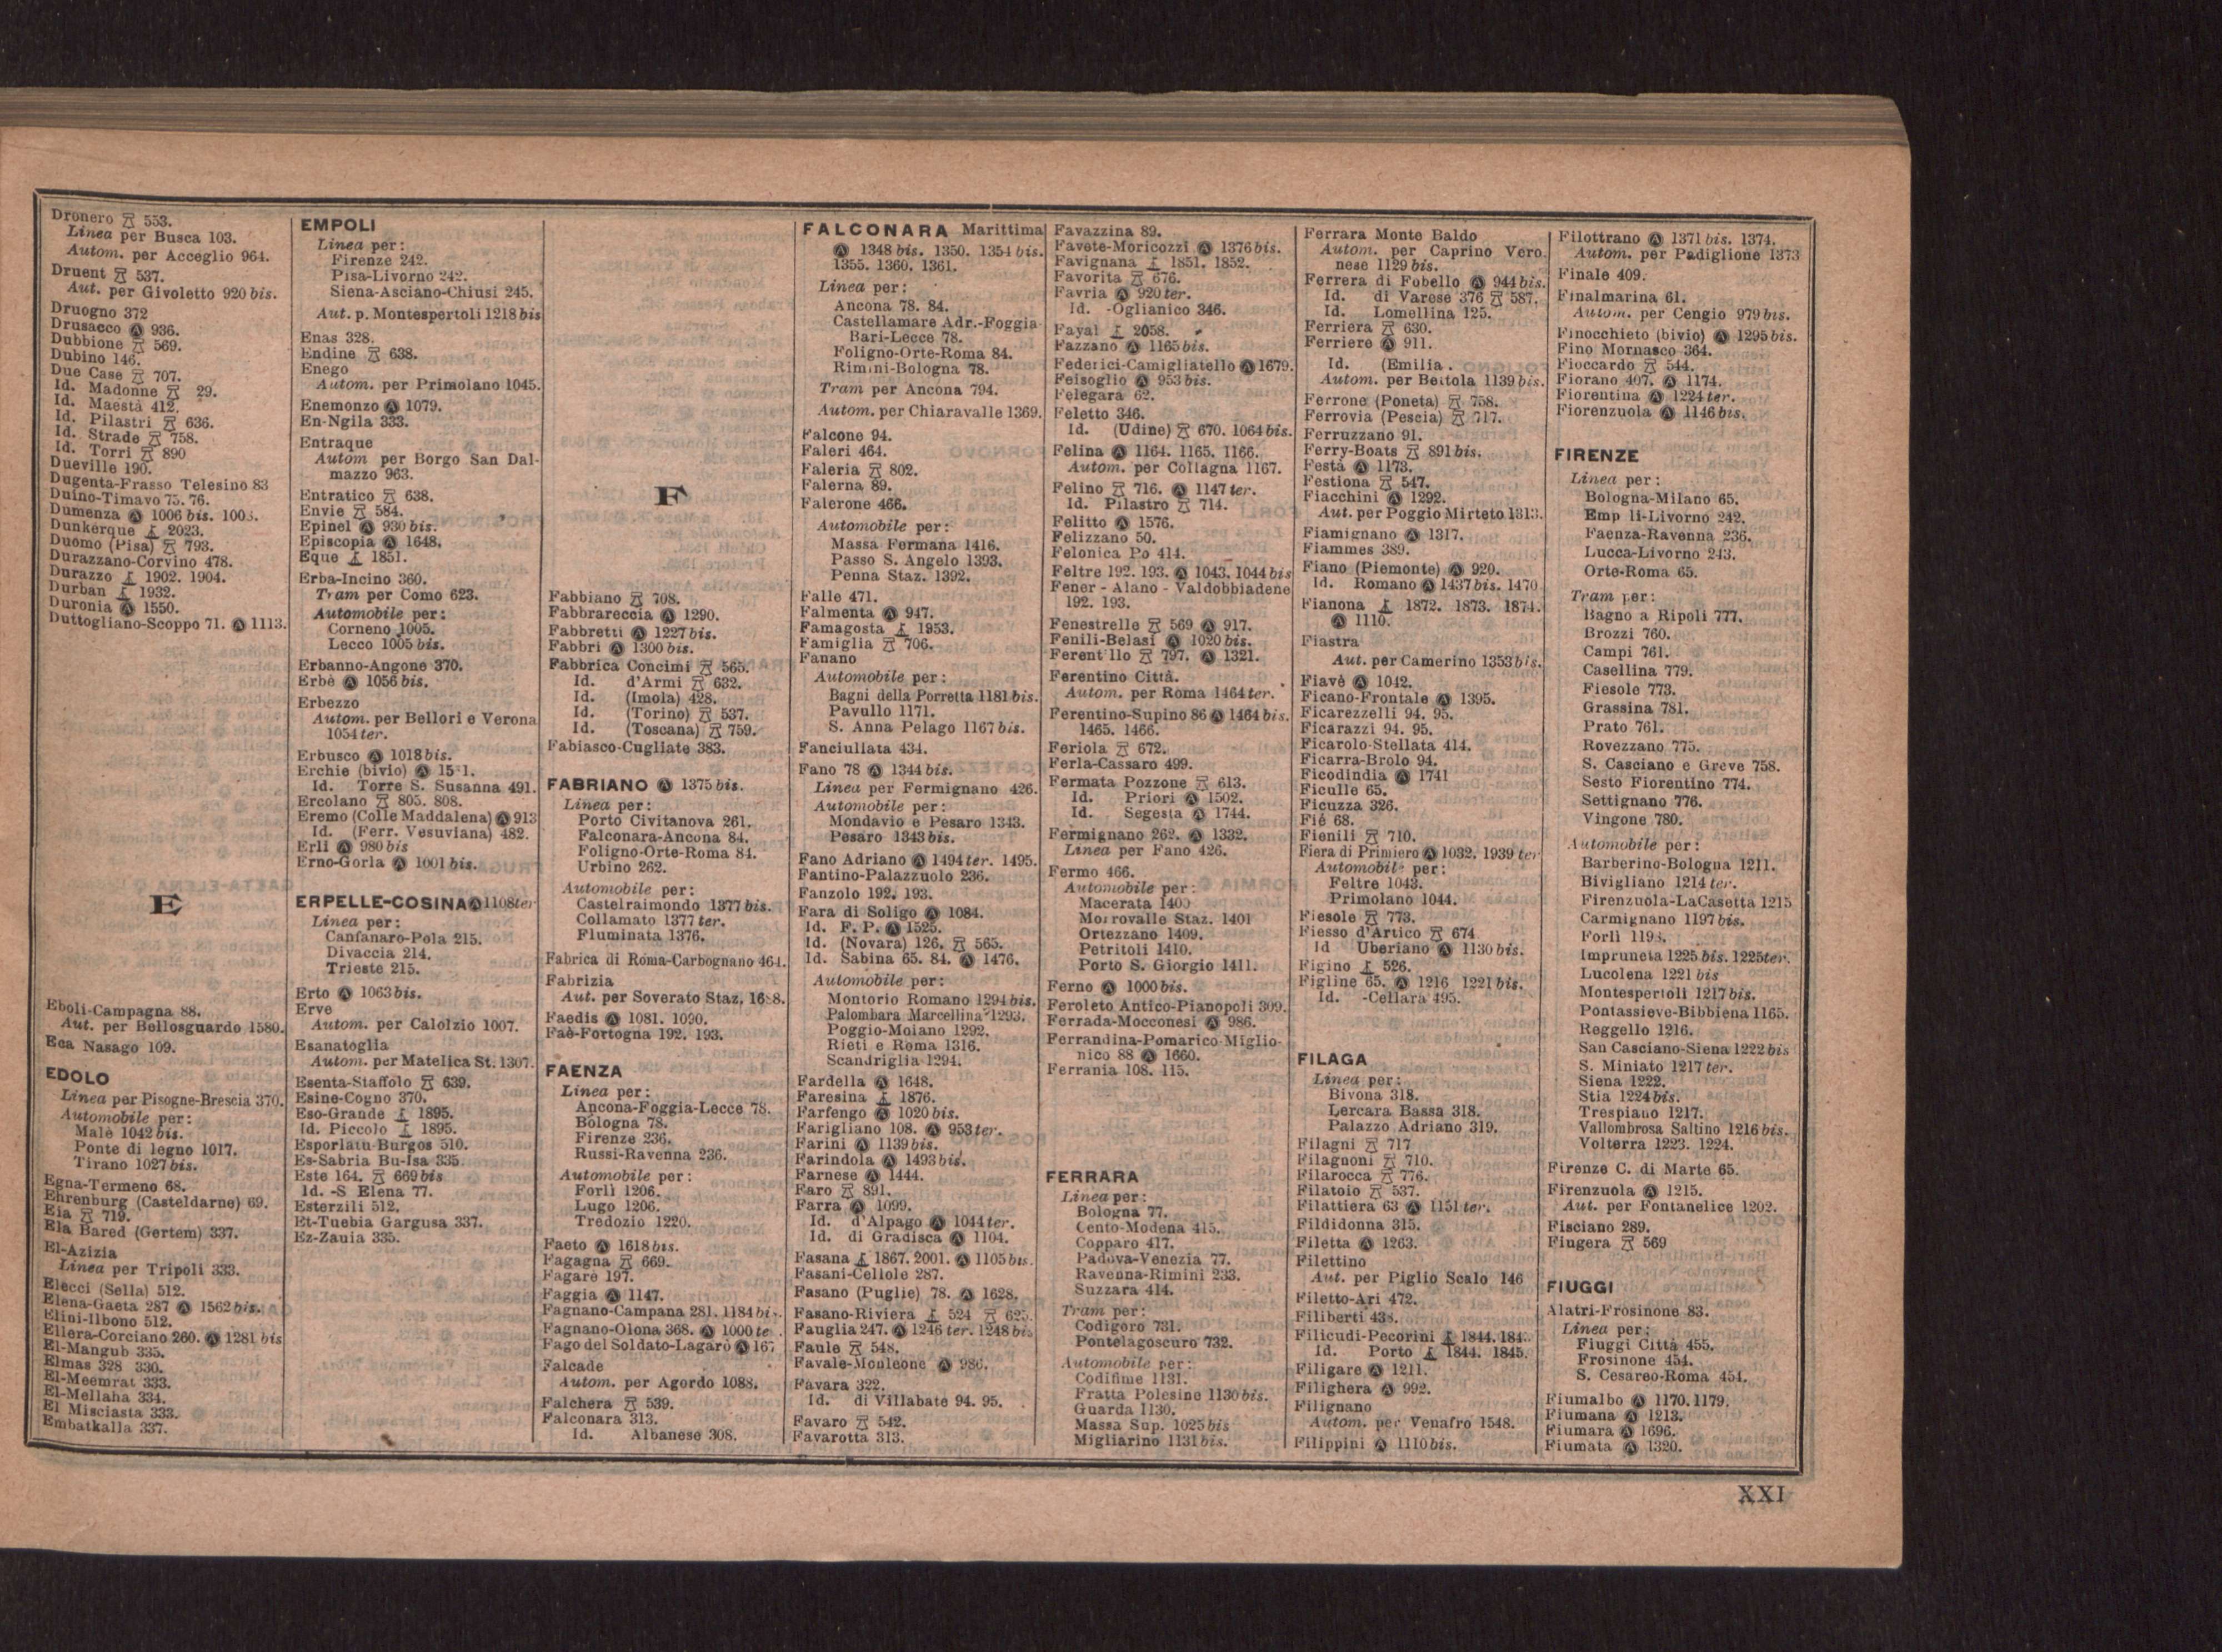 Dronero 553.
Linea per Busca 103.
Autom. per Acceglio 964.
Druent 537.
Aut. per Givoletto 920 bis.
Druogno 372
Drusacco Ⓐ 936.
Dubbione 569.
Dubino 146.
Due Case 707.
Id. Madonne 29.
Id. Maestà 412.
Id. Pilastri 636.
Id. Strade 758.
Id. Torri 890
Dueville 190.
Dugenta-Frasso Telesino 83
Duino-Timavo 75. 76.
Dumenza Ⓐ 1006 bis.
Dunkerque 2023.
Duomo (Pisa) 793.
Durazzano-Corvino 478.
Durazzo 1902. 1904.
Durban 1932.
Duronia Ⓐ 1550.
Duttogliano-Scoppo 71. Ⓐ 1113.
E
Eboli-Campagna 88.
Aut. per Bellosguardo 1580.
Eca Nasago 109.
EDOLO
Linea per Pisogne-Brescia 370.
Automobile per:
Malè 1042 bis.
Ponte di legno 1017.
Tirano 1027 bis.
Egna-Termeno 68.
Ehrenburg (Casteldarne) 69.
Eia 719.
Ela Bared (Gertem) 337.
El-Azizia
Linea per Tripoli 333.
Elecci (Sella) 512.
Elena-Gaeta 287 Ⓐ 1562 bis.
Elini-Ilbono 512.
Ellera-Corciano 260. Ⓐ 1281 bis
El-Mangub 335.
Elmas 328 330.
El-Meemrat 333.
El-Mellaha 334.
El Misciasta 333.
Embatkalla 337.
EMPOLI
Linea per:
Firenze 242.
Pisa-Livorno 242.
Siena-Asciano-Chiusi 245.
Aut. p. Montespertoli 1218 bis
Enas 328.
Endine 638.
Enego
Autom. per Primolano 1045.
Enemonzo Ⓐ 1079.
En-Ngila 333.
Entraque
Autom per Borgo San Dal-
mazzo 963.
Entratico 638.
Envie 584.
Epinel Ⓐ 930 bis.
Episcopia Ⓐ 1648.
Eque 1851.
Erba-Incino 360.
Tram per Como 623.
Automobile per:
Corneno 1005.
Lecco 1005 bis.
Erbanno-Angone 370.
Erbè Ⓐ 1056 bis.
Erbezzo
Autom. per Bellori e Verona
1054 ter.
Erbusco Ⓐ 1018 bis.
Erchie (bivio) Ⓐ
Id. Torre S. Susanna 491.
Ercolano 805. 808.
Eremo (Colle Maddalena) Ⓐ 913
Id. (Ferr. Vesuviana) 482.
Erli Ⓐ 980 bis
Erno-Gorla Ⓐ 1001 bis.
ERPELLE-COSINA Ⓐ 1108 ter
Linea per:
Canfanaro-Pola 215.
Divaccia 214.
Trieste 215.
Erto Ⓐ 1063 bis.
Erve
Autom. per Calolzio 1007.
Esanatoglia
Autom. per Matelica St. 1307.
Esenta-Staffolo 639.
Esine-Cogno 370.
Eso-Grande 1895.
Id. Piccolo 1895.
Esporlatu-Burgos 510.
Es-Sabria Bu-Isa 335
Este 164. 669 bis
Id. -S Elena 77.
Esterzili 512.
Et-Tuebia Gargusa 337.
Ez-Zauia 335.
F
Fabbiano 708.
Fabbrareccia Ⓐ 1290.
Fabbretti Ⓐ 1227 bis.
Fabbri Ⓐ 1300 bis.
Fabbrica Concimi 565.
Id. d'Armi 632.
Id. (Imola) 428.
Id. (Torino) 537.
Id. (Toscana) 759.
Fabiasco-Cugliate 383.
FABRIANO Ⓐ 1375 bis.
Linea per:
Porto Civitanova 261.
Falconara-Ancona 84.
Foligno-Orte-Roma 84.
Urbino 262.
Automobile per:
Castelraimondo 1377 bis.
Collamato 1377 ter.
Fluminata 1376.
Fabrica di Roma-Carbognano 464.
Fabrizia
Aut. per Soverato Staz.
Faedis Ⓐ 1081. 1090.
Faè-Fortogna 192. 193.
FAENZA
Linea per:
Ancona-Foggia-Lecce 78.
Bologna 78.
Firenze 236.
Russi-Ravenna 236.
Automobile per:
Forlì 1206.
Lugo 1206.
Tredozio 1220.
Faeto Ⓐ 1618 bis.
Fagagna 669.
Fagarè 197.
Faggia Ⓐ 1147.
Fagnano-Campana 281. 1184
Fagnano-Olona 368. Ⓐ 1000
Fago del Soldato-Lagarò Ⓐ
Falcade
Autom. per Agordo 1088.
Falchera 539.
Falconara 313.
Id. Albanese 308.
FALCONARA Marittima
Ⓐ 1348 bis. 1350. 1354 bis.
1355. 1360. 1361.
Linea per:
Ancona 78. 84.
Castellamare Adr.-Foggia-
Bari-Lecce 78.
Foligno-Orte-Roma 84.
Rimini-Bologna 78.
Tram per Ancona 794.
Autom. per Chiaravalle 1369.
Falcone 94.
Faleri 464.
Faleria 802.
Falerna 89.
Falerone 466.
Automobile per:
Massa Fermana 1416.
Passo S. Angelo 1393.
Penna Staz. 1392.
Falle 471.
Falmenta Ⓐ 947.
Famagosta 1953.
Famiglia 706.
Fanano
Automobile per:
Bagni della Porretta 1181 bis.
Pavullo 1171.
S. Anna Pelago 1167 bis.
Fanciullata 434.
Fano 78 Ⓐ 1344 bis.
Linea per Fermignano 426.
Automobile per:
Mondavio e Pesaro 1343.
Pesaro 1343 bis.
Fano Adriano Ⓐ 1494 ter. 1495.
Fantino-Palazzuolo 236.
Fanzolo 192. 193.
Fara di Soligo Ⓐ 1084.
Id. F. P. Ⓐ 1525.
Id. (Novara) 126. 565.
Id. Sabina 65. 84. Ⓐ 1476.
Automobile per:
Montorio Romano 1294 bis.
Palombara Marcellina 1293.
Poggio-Moiano 1292.
Rieti e Roma 1316.
Scandriglia 1294.
Fardella Ⓐ 1648.
Faresina 1876.
Farfengo Ⓐ 1020 bis.
Farigliano 108. Ⓐ 953 ter.
Farini Ⓐ 1139 bis.
Farindola Ⓐ 1493 bis.
Farnese Ⓐ 1444.
Faro 891.
Farra Ⓐ 1099.
Id. d'Alpago Ⓐ 1044 ter.
Id. di Gradisca Ⓐ 1104.
Fasana 1867. 2001. Ⓐ 1105 bis.
Fasani-Cellole 287.
Fasano (Puglie) 78. Ⓐ 1628.
Fasano-Riviera 524 625.
Fauglia 247. Ⓐ 1246 ter. 1248 bis
Faule 548.
Favale-Monleone Ⓐ 986.
Favara 322.
Id. di Villabate 94. 95.
Favaro 542.
Favarotta 313.
Favazzina 89.
Favete-Moricozzi Ⓐ 1376 bis.
Favignana 1851. 1852.
Favorita 676.
Favria Ⓐ 920 ter.
Id. -Oglianico 346.
Fayal 2058.
Fazzano Ⓐ 1165 bis.
Federici-Camigliatello Ⓐ 1679.
Feisoglio Ⓐ 953 bis.
Felegara 62.
Feletto 346.
Id. (Udine) 670. 1064 bis.
Felina Ⓐ 1164. 1165. 1166.
Autom. per Collagna 1167.
Felino 716. Ⓐ 1147 ter.
Id. Pilastro 714.
Felitto Ⓐ 1576.
Felizzano 50.
Felonica Po 414.
Feltre 192. 193. Ⓐ 1043. 1044 bis
Fener - Alano - Valdobbiadene
192. 193.
Fenestrelle 569 Ⓐ 917.
Fenili-Belasi Ⓐ 1020 bis.
Ferent llo 797. Ⓐ 1321.
Ferentino Città.
Autom. per Roma 1464 ter.
Ferentino-Supino 86 Ⓐ 1464 bis.
1465. 1466.
Feriola 672.
Ferla-Cassaro 499.
Fermata Pozzone 613.
Id. Priori Ⓐ 1502.
Id. Segesta Ⓐ 1744.
Fermignano 262. Ⓐ 1332.
Linea per Fano 426.
Fermo 466.
Automobile per:
Macerata 1400
Morrovalle Staz. 1401
Ortezzano 1409.
Petritoli 1410.
Porto S. Giorgio 1411.
Ferno Ⓐ 1000 bis.
Feroleto Antico-Pianopoli 309.
Ferrada-Mocconesi Ⓐ 986.
Ferrandina-Pomarico-Miglio-
nico 88 Ⓐ 1660.
Ferrania 108. 115.
FERRARA
Linea per:
Bologna 77.
Cento-Modena 415.
Copparo 417.
Padova-Venezia 77.
Ravenna-Rimini 233.
Suzzara 414.
Tram per:
Codigoro 731.
Pontelagoscuro 732.
Automobile per:
Codifiume 1131.
Fratta Polesine 1130 bis.
Guarda 1130.
Massa Sup. 1025 bis
Migliarino 1131 bis.
Ferrara Monte Baldo
Autom. per Caprino Vero
nese 1129 bis.
Ferrera di Fobello Ⓐ 944 bis.
Id. di Varese 376 587.
Id. Lomellina 125.
Ferriera 630.
Ferriere Ⓐ 911.
Id. (Emilia.
Autom. per Bettola 1139 bis.
Ferrone (Poneta) 758.
Ferrovia (Pescia) 717.
Ferruzzano 91.
Ferry-Boats 891 bis.
Festà Ⓐ 1173.
Festiona 547.
Fiacchini Ⓐ 1292.
Aut. per Poggio Mirteto 1313.
Fiamignano Ⓐ 1317.
Fiammes 389.
Fiano (Piemonte) Ⓐ 920.
Id. Romano Ⓐ 1437 bis. 1470
Fianona 1872. 1873. 1874.
Ⓐ 1110.
Fiastra
Aut. per Camerino 1353 bis.
Fiavè Ⓐ 1042.
Ficano-Frontale Ⓐ 1395.
Ficarezzelli 94. 95.
Ficarazzi 94. 95.
Ficarolo-Stellata 414.
Ficarra-Brolo 94.
Ficodindia Ⓐ 1741
Ficulle 65.
Ficuzza 326.
Fiè 68.
Fienili 710.
Fiera di Primiero Ⓐ 1032. 1939 ter
Automobile per:
Feltre 1043.
Primolano 1044.
Fiesole 773.
Fiesso d'Artico 674
Id Uberiano Ⓐ 1130 bis.
Figino 526.
Figline 65. Ⓐ 1216 1221 bis.
Id. -Cellara 495.
FILAGA
Linea per:
Bivona 318.
Lercara Bassa 318.
Palazzo Adriano 319.
Filagni 717
Filagnoni 710.
Filarocca 776.
Filatoio 537.
Filattiera 63 Ⓐ 1151 ter.
Fildidonna 315.
Filetta Ⓐ 1263.
Filettino
Aut. per Piglio Scalo 146
Filetto-Ari 472.
Filiberti 438.
Filicudi-Pecorini 1844.
Id. Porto 1844. 1845.
Filigare Ⓐ 1211.
Filighera Ⓐ 992.
Filignano
Autom. per Venafro 1548.
Filippini Ⓐ 1110 bis.
Filottrano Ⓐ 1371 bis. 1374.
Autom. per Padiglione 1373
Finale 409.
Finalmarina 61.
Autom. per Cengio 979 bis.
Finocchieto (bivio) Ⓐ 1295 bis.
Fino Mornasco 364.
Fioccardo 544.
Fiorano 407. Ⓐ 1174.
Fiorentina Ⓐ 1224 ter.
Fiorenzuola Ⓐ 1146 bis.
FIRENZE
Linea per:
Bologna-Milano 65.
Emp li-Livorno 242.
Faenza-Ravenna 236.
Lucca-Livorno 243.
Orte-Roma 65.
Tram per:
Bagno a Ripoli 777.
Brozzi 760.
Campi 761.
Casellina 779.
Fiesole 773.
Grassina 781.
Prato 761.
Rovezzano 775.
S. Casciano e Greve 758.
Sesto Fiorentino 774.
Settignano 776.
Vingone 780.
Automobile per:
Barberino-Bologna 1211.
Bivigliano 1214 ter.
Firenzuola-LaCasetta 1215
Carmignano 1197 bis.
Forlì 1198.
Impruneta 1225 bis. 1225 ter.
Lucolena 1221 bis
Montespertoli 1217 bis.
Pontassieve-Bibbiena 1165.
Reggello 1216.
San Casciano-Siena 1222 bis
S. Miniato 1217 ter.
Siena 1222.
Stia 1224 bis.
Trespiano 1217.
Vallombrosa Saltino 1216 bis.
Volterra 1223. 1224.
Firenze C. di Marte 65.
Firenzuola Ⓐ 1215.
Aut. per Fontanelice 1202.
Fisciano 289.
Fiugera 569
FIUGGI
Alatri-Frosinone 83.
Linea per:
Fiuggi Città 455.
Frosinone 454.
S. Cesareo-Roma 454.
Fiumalbo Ⓐ 1170. 1179.
Fiumana Ⓐ 1213.
Fiumara Ⓐ 1696.
Fiumata Ⓐ 1320.
XXI